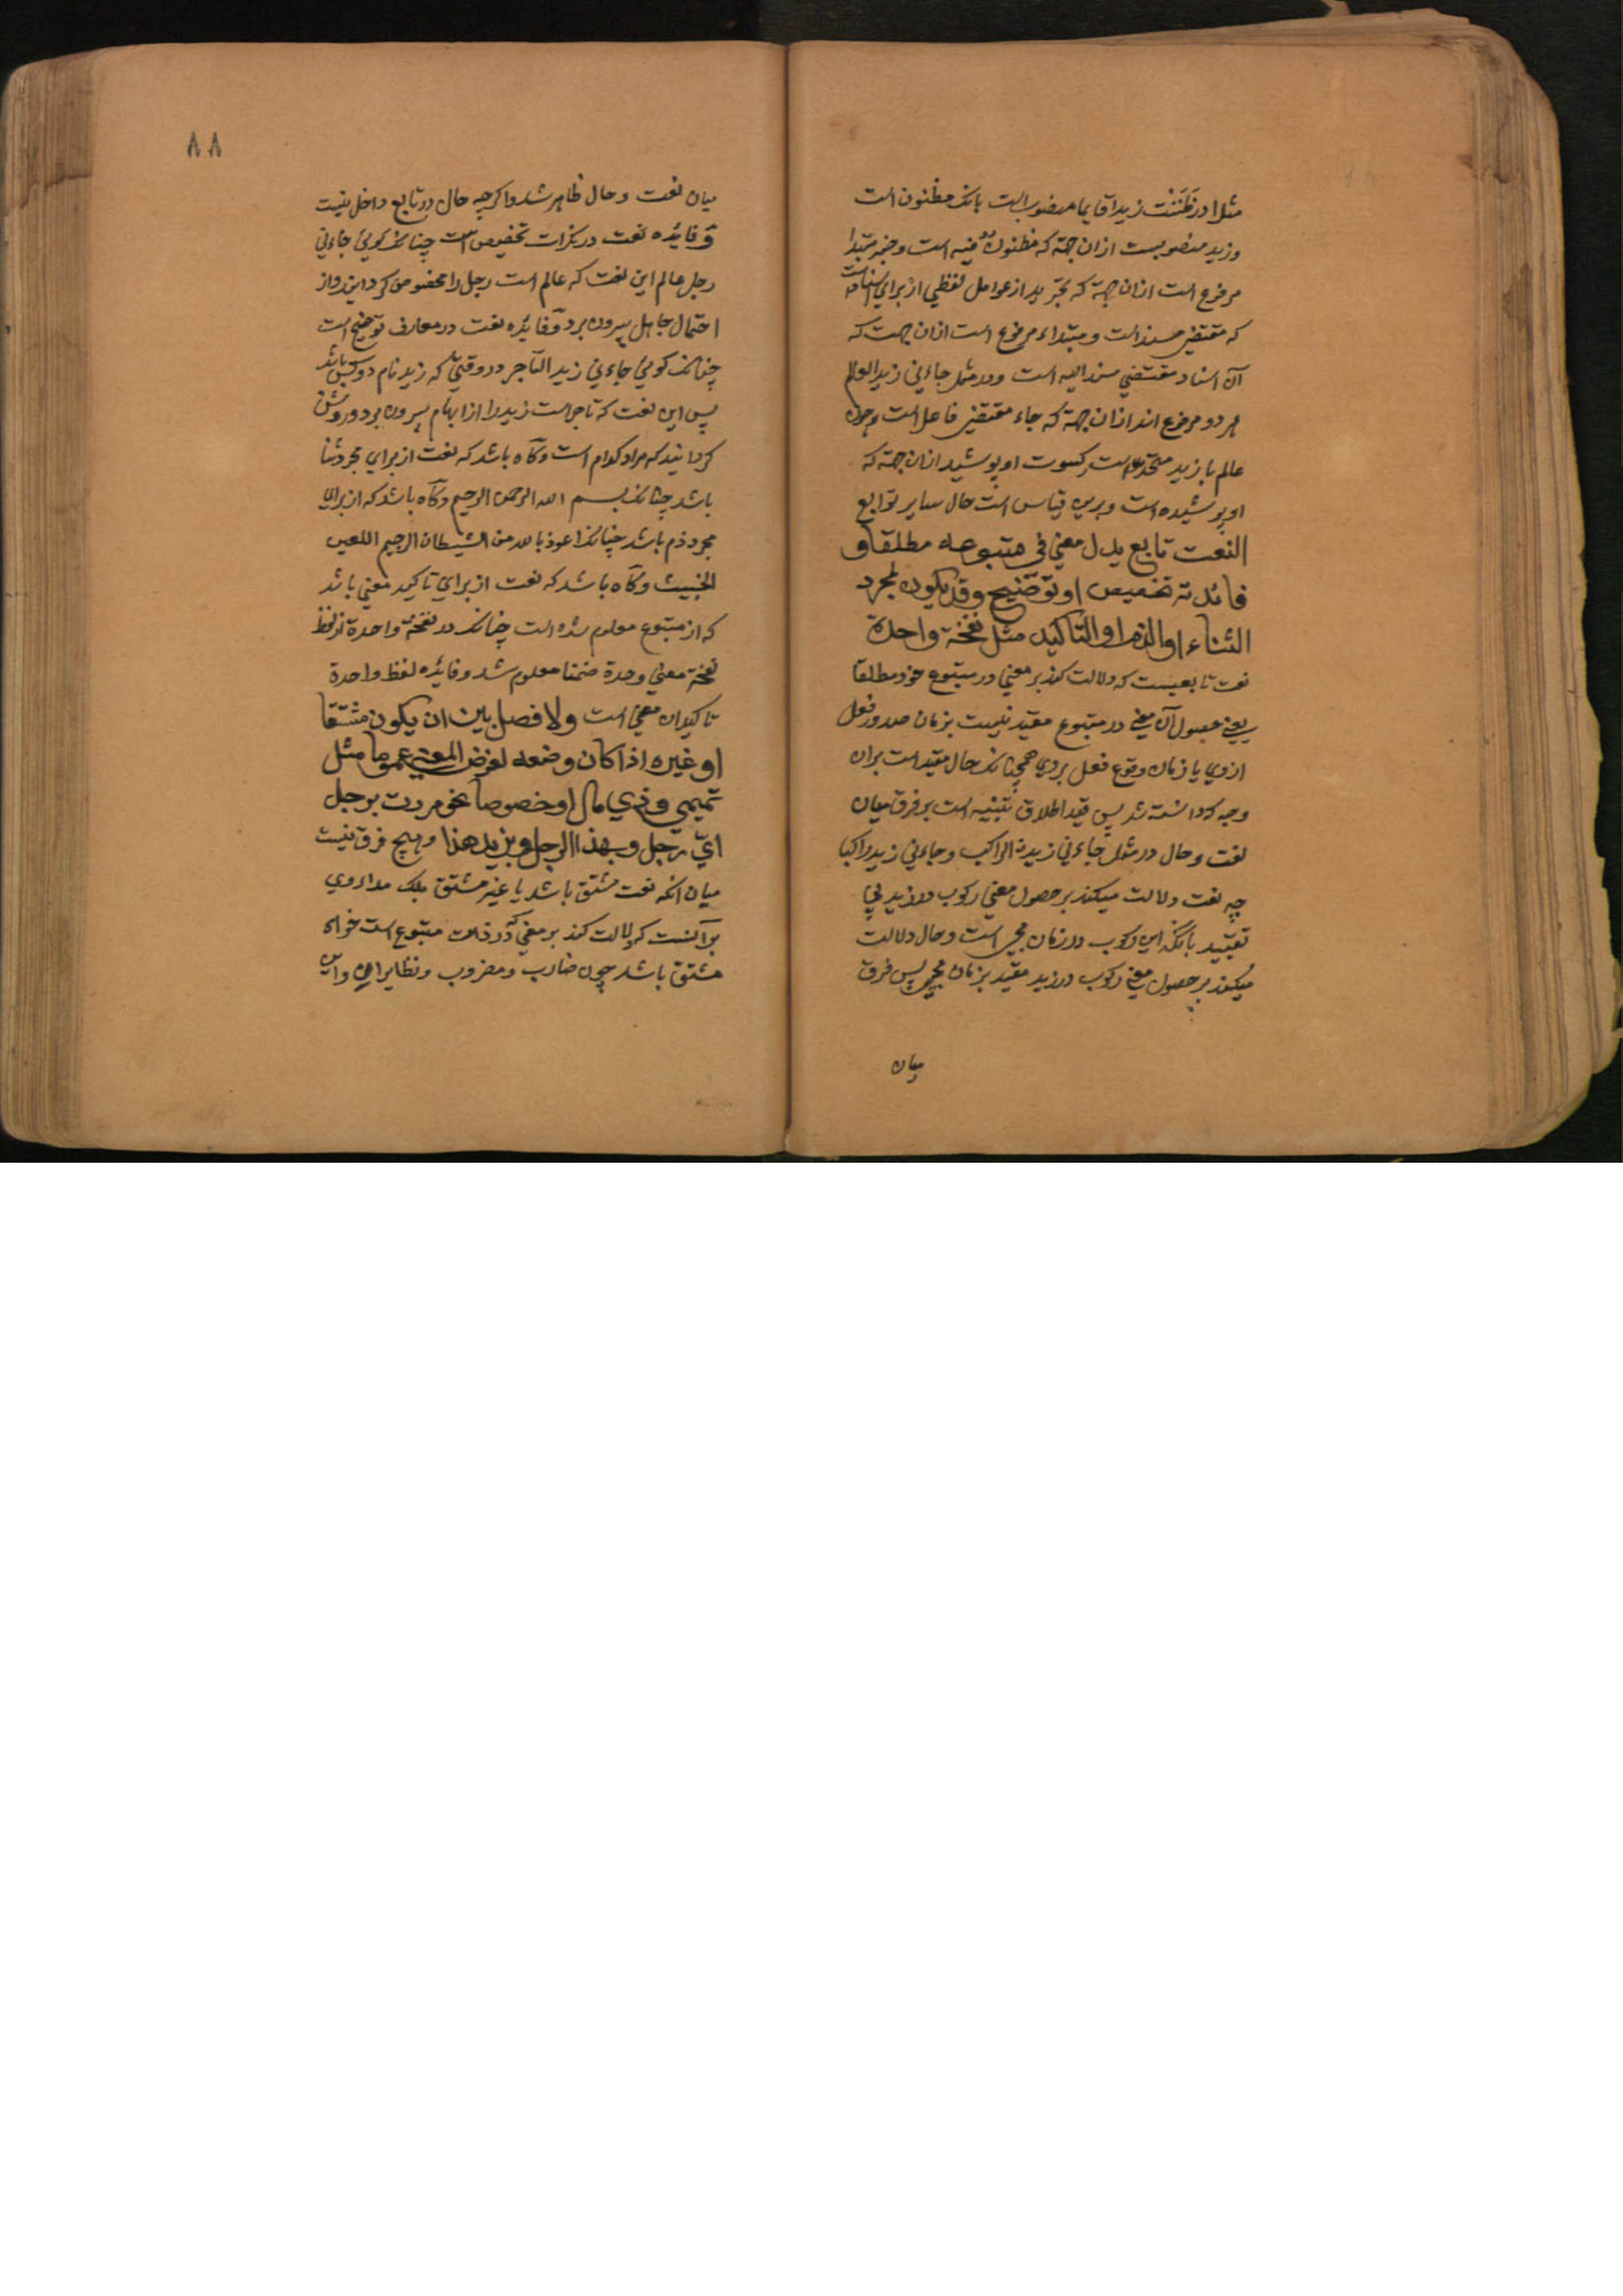 مثلا در ظَنَنْت زیدا قایما منصوبست بانک مظنون است
و زید منصوبست ازان جهة که مظنون فیه است و خبر مبتدا
مرفوع است ازان جهة که تجرید از عوامل لفظی از برای اسناد است
که مقتضی مسند است و مبتداء مرفوع است ازان جهت که
آن اسناد مقتضی مسند الیه است و در مثل جاءنی زید العالم
هر دو مرفوع اند ازان جهة که جاء مقتضی فاعل است و چون
عالم با زید متحد است کسوت او پوشید ازان جهة که
او پوشیده است و برین قیاس است حال سایر توابع
النعت تابع یدل معنی فی متبوعه مطلقا و
فائدته تخصیص او توضیح وقد یکون لمجرد
الثناء او الذم او التاکید مثل نفخة واحدة
نعت تابعیست که دلالت کند بر معنی در متبوع خود مطلقا
یعنی حصول آن معنی در متبوع مقید نیست بزمان صدور فعل
ازوی یا زمان وقوع فعل بروی همچنانک حال مقید است بران
وجه که دانسته شد پس قید اطلاق تنبیه است بر فرق میان
نعت و حال در مثل جاءنی زیدن الراکب و جاءنی زید راکبا
چه نعت دلالت میکند بر حصول معنی رکوب در زید بی
تقیید بانکه این رکوب در زمان مجی است و حال دلالت
میکند بر حصول معنی رکوب در زید مقید بزمان مجی پس فرق
میان
٨٨
میان نعت و حال ظاهر شد و اکرچه حال در تابع داخل نیست
و فایده نعت در نکرات تخصیص است چنانک کویی جاءنی
رجل عالم این نعت که عالم است رجل را مخصوص کردانید و از
احتمال جاهل بیرون برد و فایده نعت در معارف توضیح است
چنانک کویی جاءنی زید التاجر در وقتی که زید نام دو کس باشد
پس این نعت که تاجر است زید را از ابهام بیرون برد و روشن
کردانید که مراد کدام است وکاه باشد که نعت از برای مجرد ثنا
باشد چنانک بسم الله الرحمن الرحیم وکاه باشد که از برای
مجرد ذم باشد چنانک اعوذ بالله من الشیطان الرجیم اللعین
الخبیث وکاه باشد که نعت از برای تاکید معنی باشد
که از متبوع معلوم شده است چنانک در نفخة واحدة از لفظ
نفخة معنی وحدة ضمنا معلوم شد و فایده لفظ واحدة
تاکید ان معنی است ولا فصل بین ان یکون مشتقا
او غیره اذا کان وضعه لغرض المعنی عموما مثل
تمیمی وذی مال او خصوصا نحو مررت برجل
ای رجل وبهذا الرجل وبزید هذا و هیچ فرق نیست
میان انکه نعت مشتق باشد یا غیر مشتق بلک مدار وی
بر آنست که دلالت کند بر معنی که در ذات متبوع است خواه
مشتق باشد چون ضارب و مضروب و نظایر این و